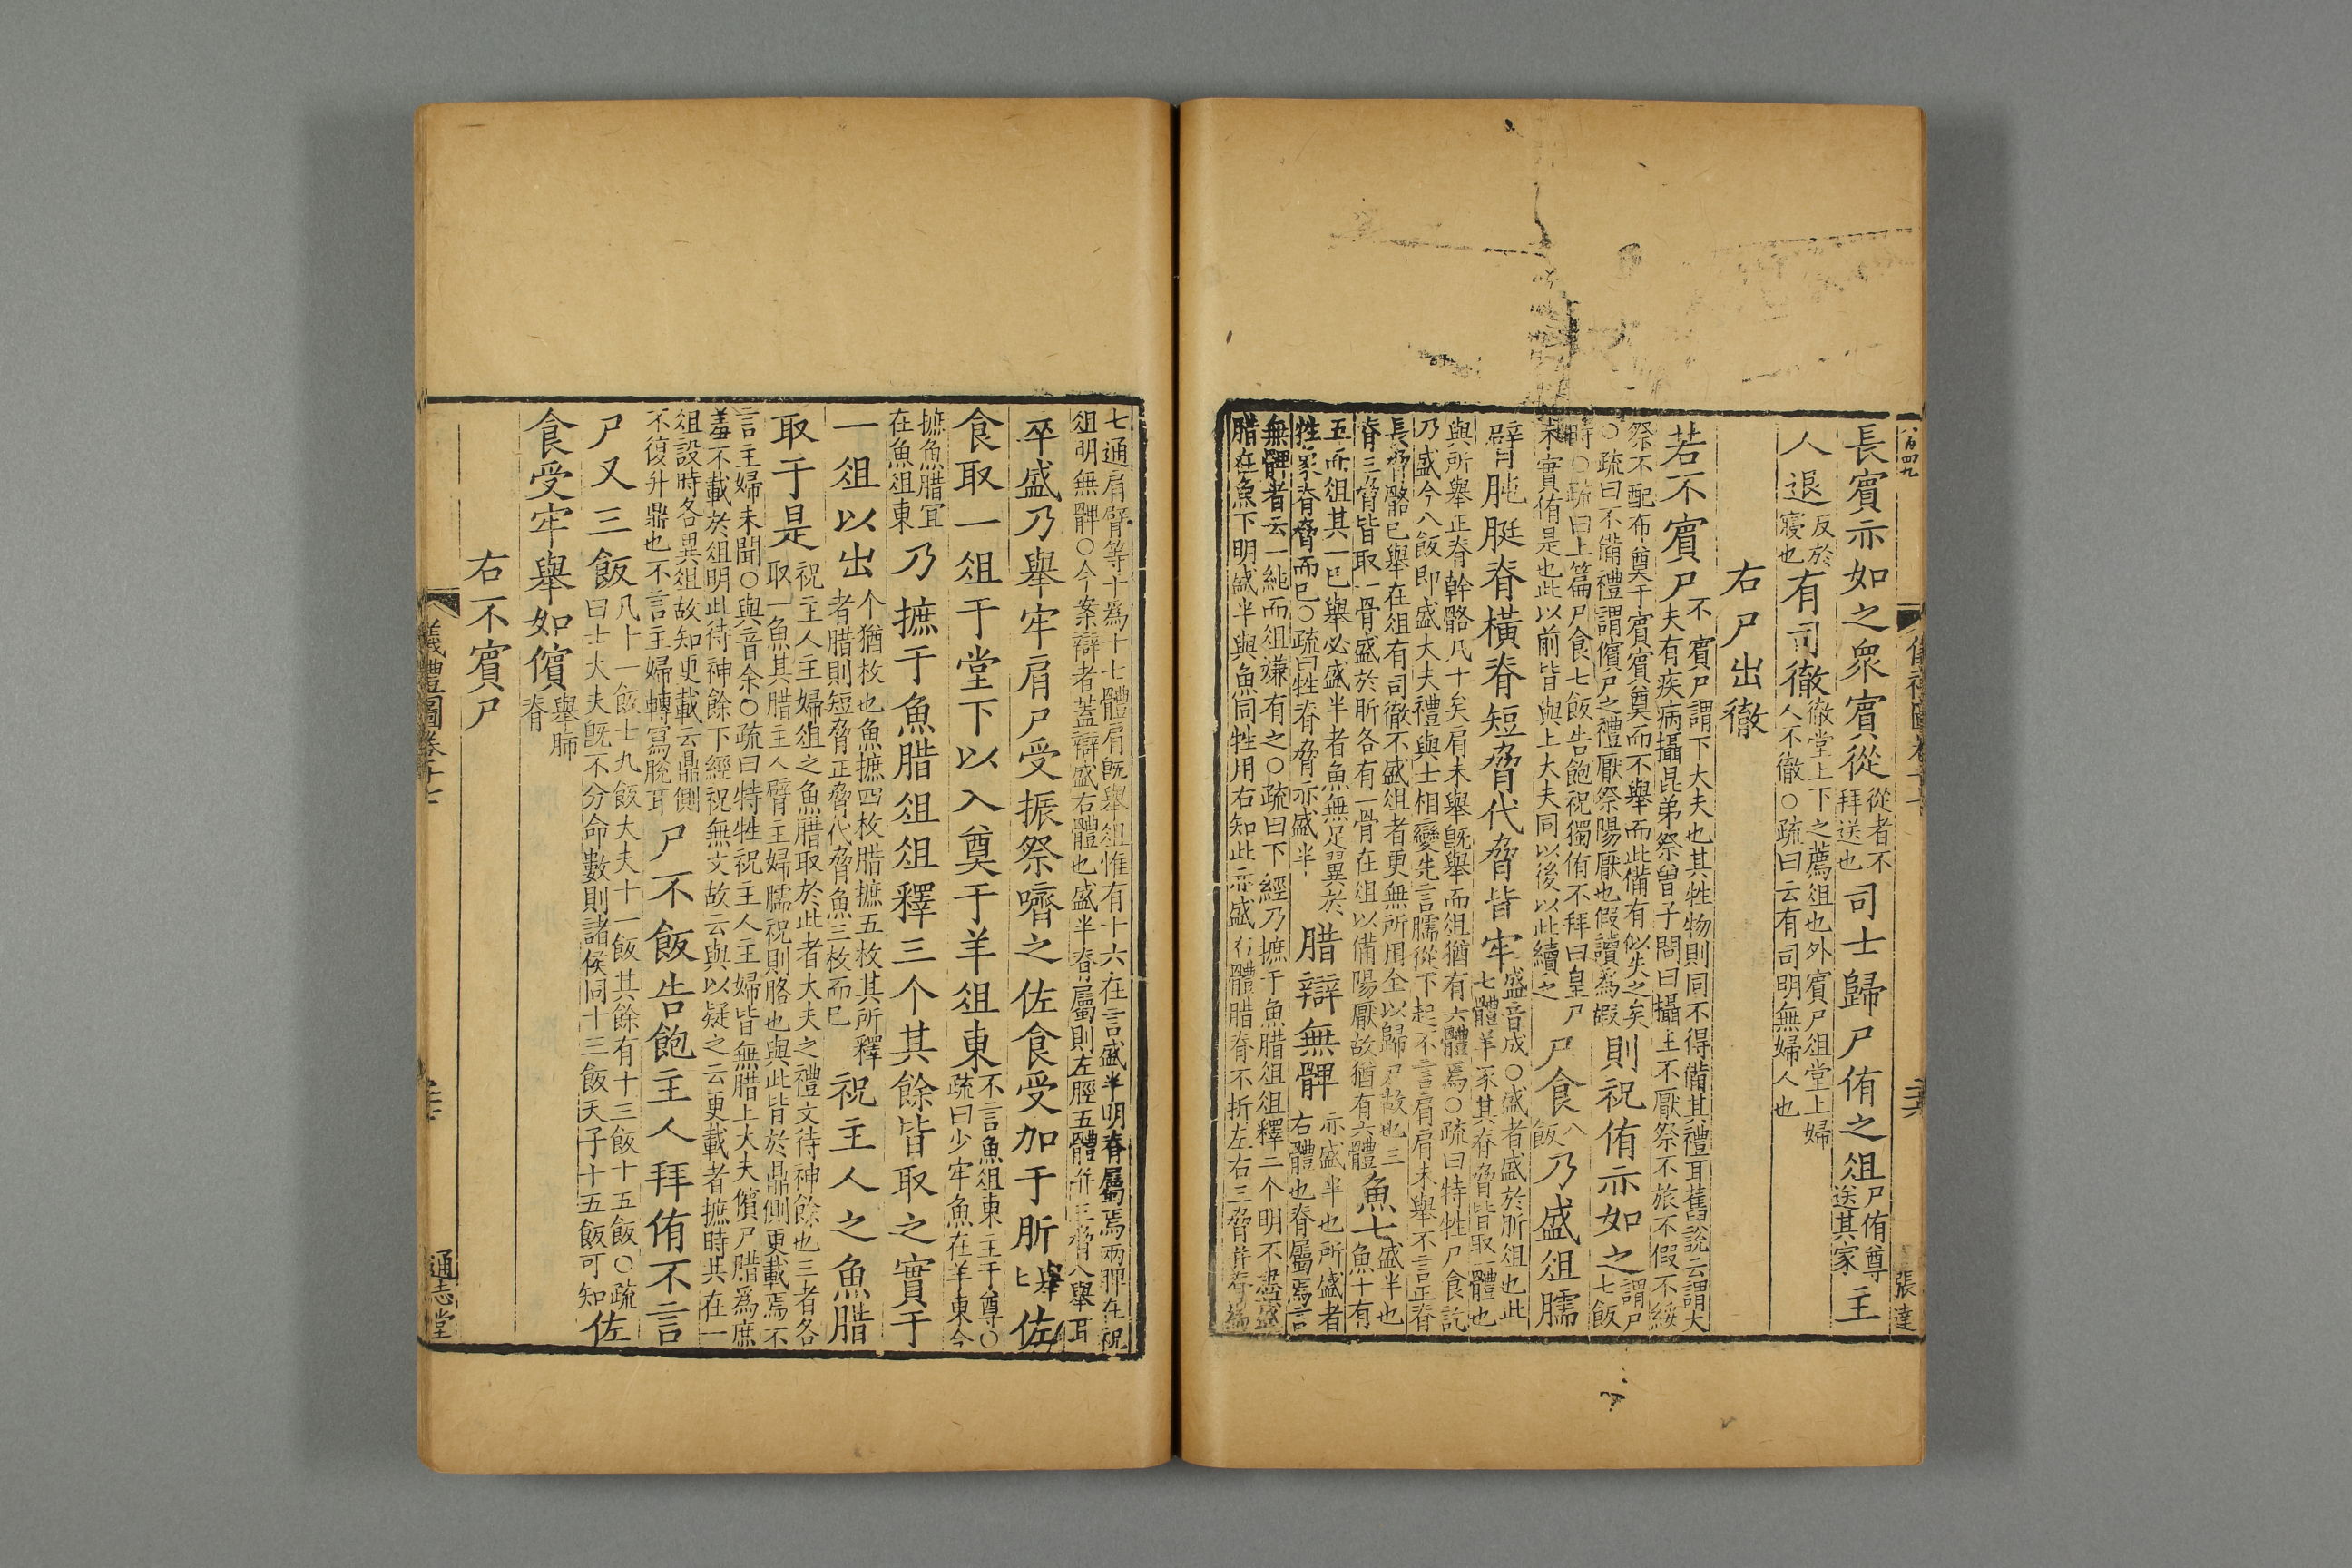 長賓亦如之衆賓從從者不拜送也司士歸尸侑之俎尸侑尊送其家主
人退反於寢也有司徹徹堂上下之薦俎也外賓尸俎堂上婦人不徹○疏曰云有司明無婦人也
右尸出徹
若不賓尸不賓尸謂下大夫也其牲物則同不得備其禮耳舊說云謂大夫有疾病攝昆弟祭曾子問曰攝主不厭祭不旅不假不綏
祭不配布奠于賓賓奠而不舉而此備有似失之矣○疏曰不備禮謂儐尸之禮厭祭陽厭也假讀為嘏則祝侑亦如之謂尸七飯
時○疏曰上篇尸食七飯告飽祝獨侑不拜曰皇尸未實侑是也此以前皆與上大夫同以後以此續之尸食八飯乃盛俎臑
臂肫脡脊橫脊短脅代脅皆牢盛音成○盛者盛於肵俎也此七體羊豕其脊脅皆取一體也
與所舉正脊幹骼凡十矣肩未舉既舉而俎猶有六體焉○疏曰特牲尸食訖
乃盛今八飯即盛大夫禮與士相變先言臑從下起不言肩肩未舉不言正脊
長脅骼已舉在俎有司徹不盛俎者更無所用全以歸尸故也三脊三脅皆取一骨盛於肵各有一骨在俎以備陽厭故猶有六體魚七盛半也魚十有
五而俎其一已舉必盛半者魚無足翼於牲象脊脅而已○疏曰牲脊脅亦盛半腊辯無髀亦盛半也所盛者右體也脊屬焉言
無髀者云一純而俎嫌有之○疏曰下經乃摭于魚腊俎俎釋三个明不盡盛
腊在魚下明盛半與魚同牲用右知此亦盛右體腊脊不折左右三脅并脊為
七通肩臂等十為十七體肩既舉俎惟有十六在言盛半明脊屬焉兩髀在祝
俎明無髀○今案辯者蓋辯盛右體也盛半脊屬則左脛五體并三脅八舉耳
卒盛乃舉牢肩尸受振祭嚌之佐食受加于肵卒舉佐
食取一俎于堂下以入奠于羊俎東不言魚俎東主于尊○疏曰少牢魚在羊東今
摭魚腊宜在魚俎東乃摭于魚腊俎俎釋三个其餘皆取之實于
一俎以出个猶枚也魚摭四枚腊摭五枚其所釋者腊則短脅正脅代脅魚三枚而已祝主人之魚腊
取于是祝主人主婦俎之魚腊取於此者大夫之禮文待神餘也三者各取一魚其腊主人臂主婦臑祝則胳也與此皆於鼎側更載焉不
言主婦未聞○與音余○疏曰特牲祝主人主婦皆無腊上大夫儐尸腊為庶
羞不載於俎明此待神餘下經祝無文故云與以疑之云更載者摭時共在一
俎設時各異俎故知更載云鼎側不復升鼎也不言主婦轉寫脫耳尸不飯告飽主人拜侑不言
尸又三飯凡十一飯士九飯大夫十一飯其餘有十三飯十五飯○疏曰士大夫既不分命數則諸侯同十三飯天子十五飯可知佐
食受牢舉如儐舉肺脊
右不賓尸
儀禮圖卷十七
通志堂
八百四九
張達